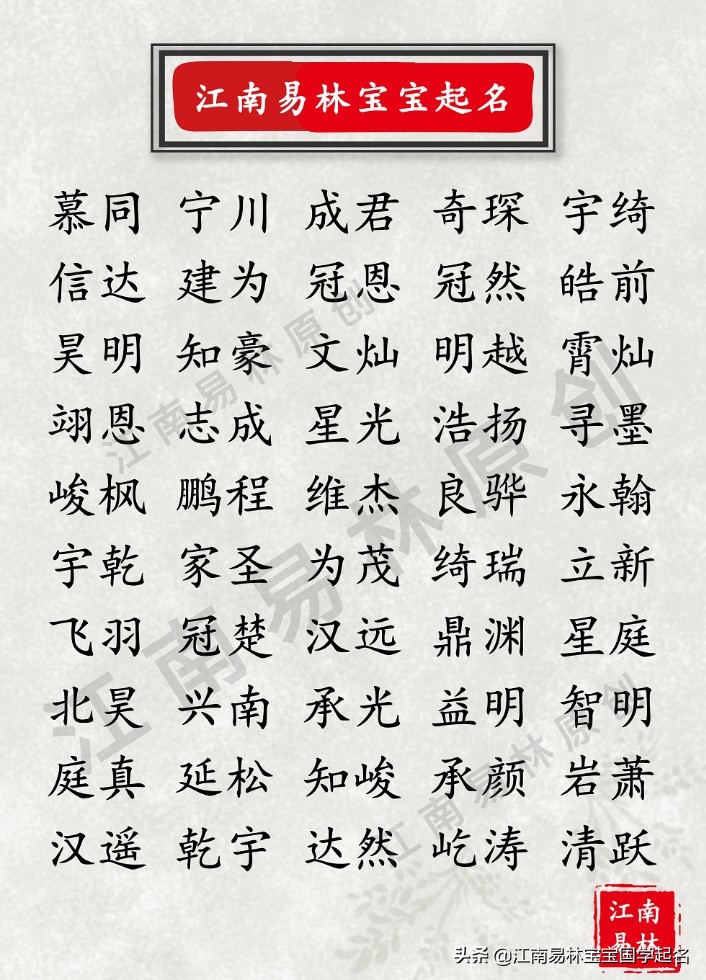 江南易林宝宝起名
慕同 宁川 成君 奇琛 宇绮
信达 建为 冠恩 冠然 皓前
昊明 知豪 文灿 明越 霄灿
翊恩 志成 星光 浩扬 寻墨
峻枫 鹏程 维杰 良骅 永翰
宇乾 家圣 为茂 绮瑞 立新
飞羽 冠楚 汉远 鼎渊 星庭
北昊 兴南 承光 益明 智明
庭真 延松 知峻 承颜 岩萧
汉遥 乾宇 达然 屹涛 清跃
江南易林原创
江南易林原创
江南易林原创
江南
易林
头条 @江南易林宝宝国学起名